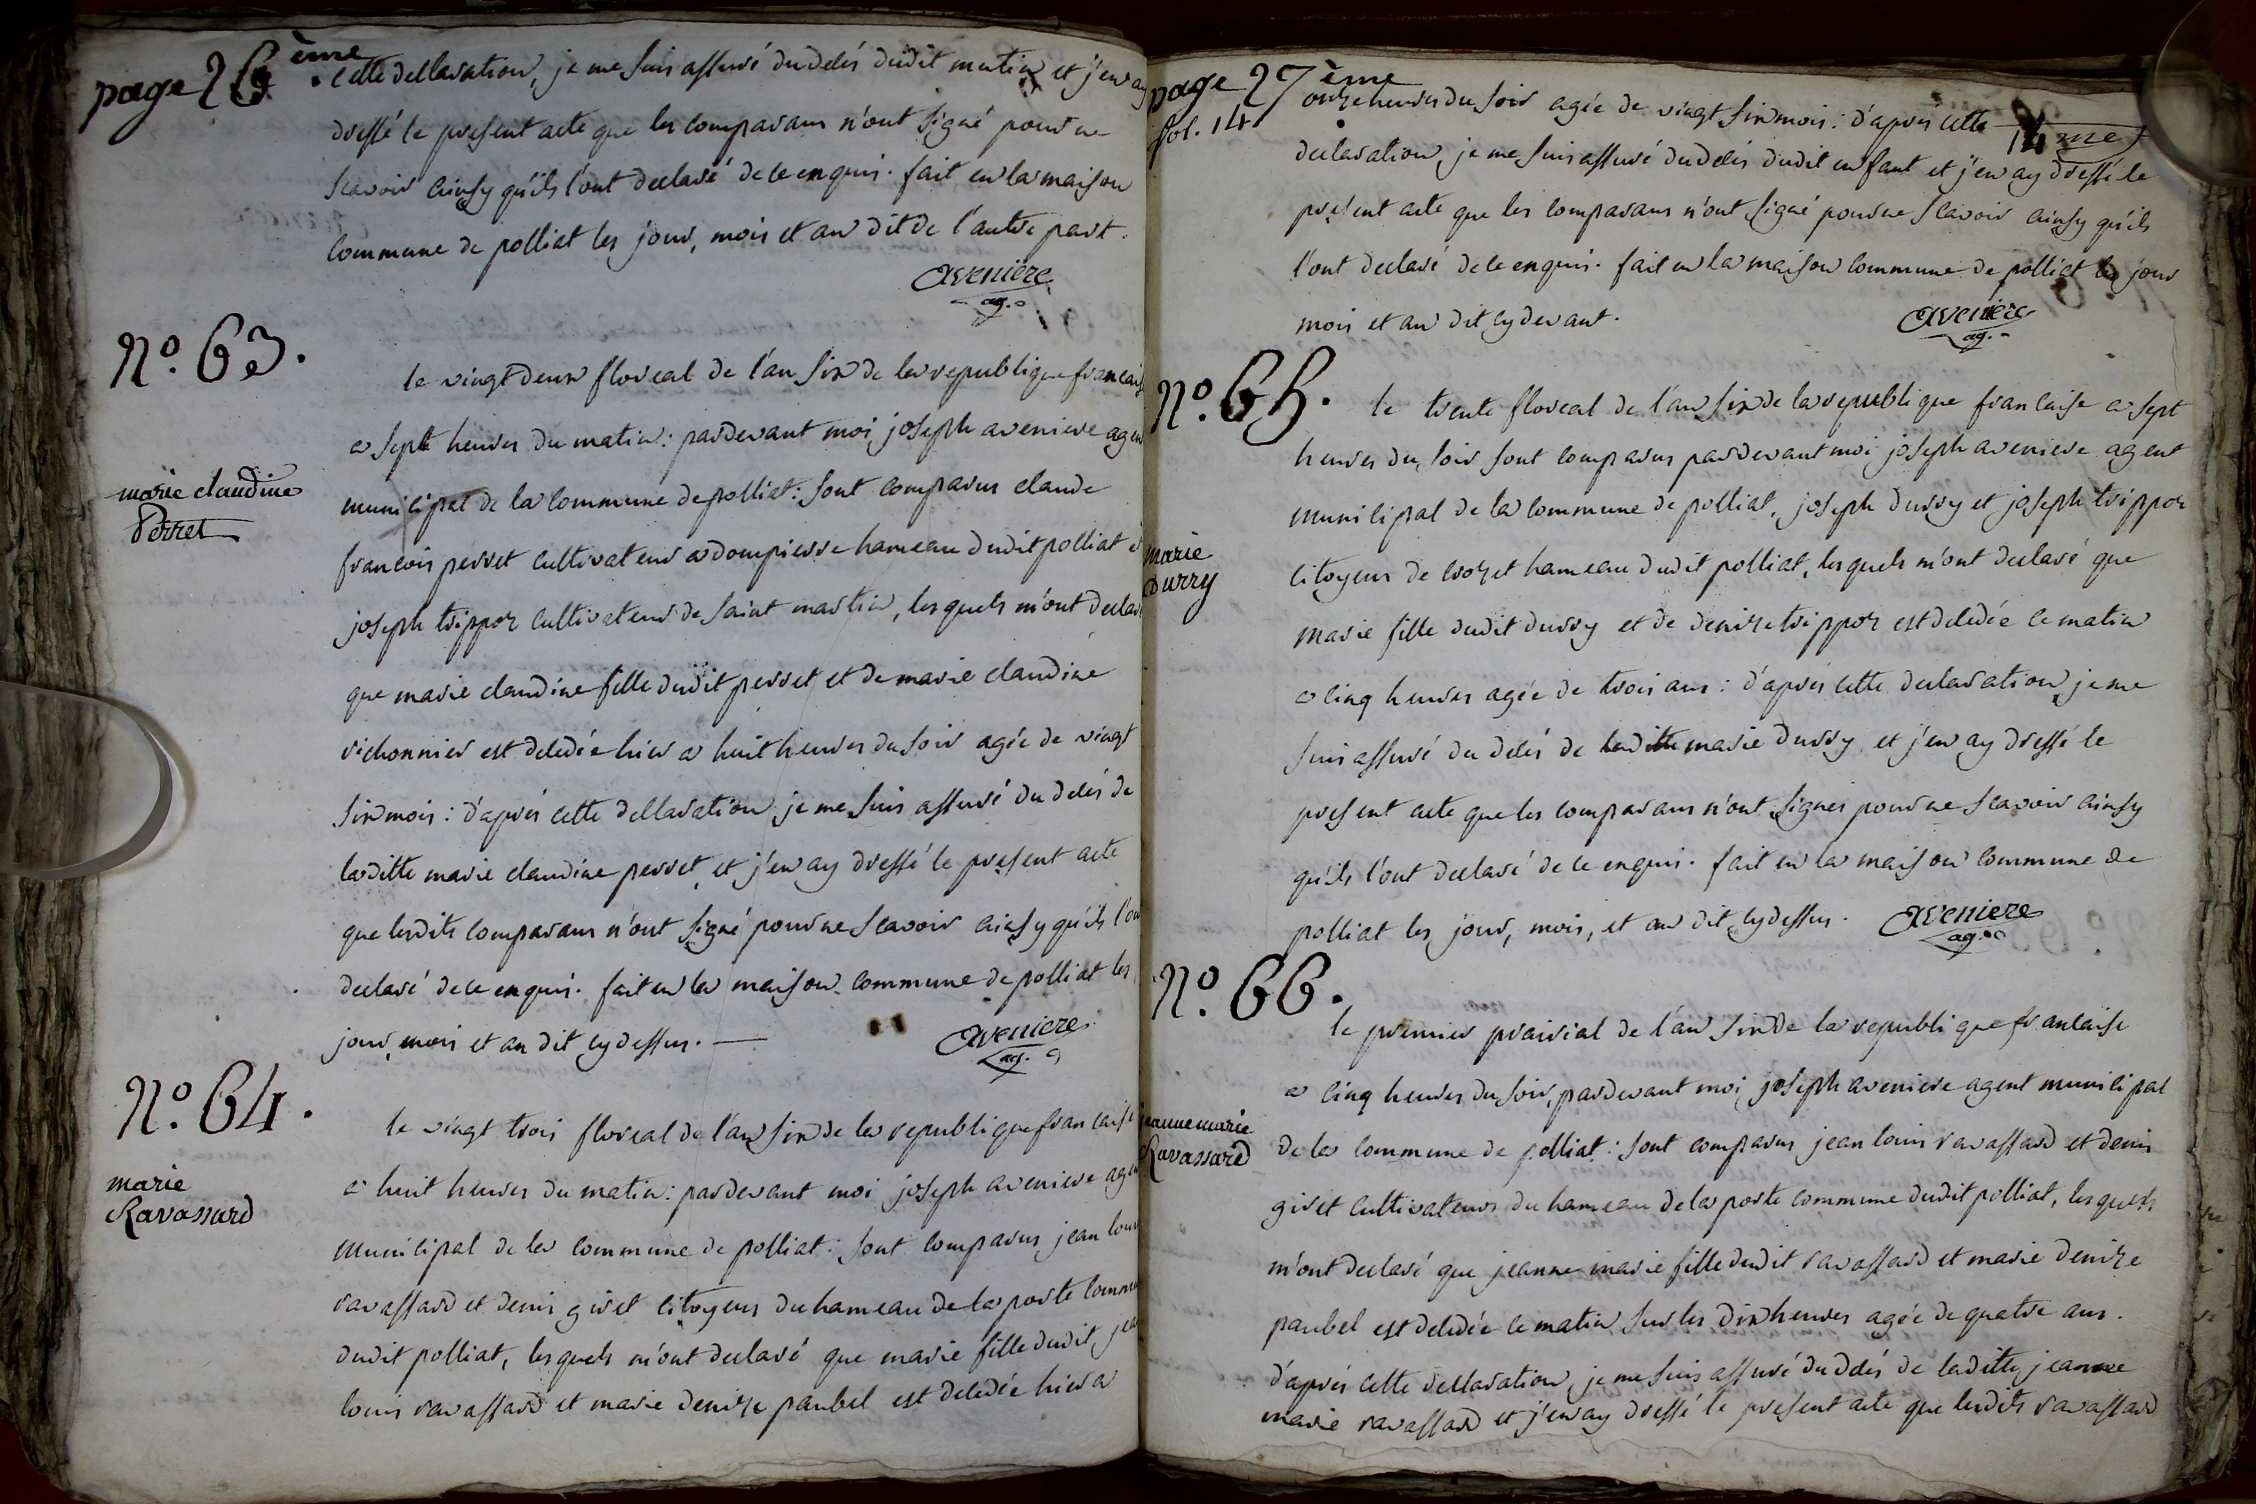 page 26 ème
cette dellaration, je me suis assuré du decés dudit mutin et j'en ay
dressé le present acte que les comparans n'ont signé pour ne
scavoir ainsy qu'ils l'ont declaré de ce enquis. fait en la maison
commune de polliat les jour, mois et an dit de l'autre part.
aveniere
ag.
N° 63.
marie claudine
Perret
le vingt deux floreal de l'an six de la republique francais
a sept heures du matin: pardevant moi joseph aveniere agen
municipal de la commune de polliat: sont comparus claude
francois perret cultivateur a dompierre hameau dudit polliat e
joseph trippoz cultivateur de saint martin, lesquels m'ont declar
que marie claudine fille dudit perret et de marie claudine
vichonnier est decedée hier a huit heures du soir agée de vingt
six mois: d'aprés cette dellaration je me suis assuré du decés de
laditte marie claudine perret et j'en ay dressé le present acte
que lesdits comparans n'ont signé pour ne scavoir ainsy qu'ils l'on
declaré de ce enquis. fait en la maison commune de polliat les
jour, mois et an dit cydessus.
aveniere
ag.
N° 64.
marie
Ravassard
le vingt trois floreal de l'an six de la republique francaise
a huit heures du matin: pardevant moi joseph aveniere agen
municipal de la commune de polliat: sont comparus jean loui
ravassard et denis givet citoyens du hameau de la poste commu
dudit polliat, lesquels m'ont declaré que marie fille dudit jea
louis ravassard et marie denize paubel est decedée hier a
page 27 ème
fol. 14
14 me
onze heures du soir agée de vingt six mois: d'aprés cette
declaration, je me suis assuré du decés dudit enfant et j'en ay dressé le
present acte que les comparans n'ont signé pour ne scavoir ainsy qu'ils
l'ont declaré de ce enquis. fait en la maison commune de polliat les jour
mois et an dit cydevant.
aveniere
ag.
N° 65.
marie
Durry
le trente floreal de l'an six de la republique francaise a sept
heures du soir sont comparus pardevant moi joseph aveniere agent
municipal de la commune de polliat, joseph durry et joseph trippoz
citoyens de crozet hameau dudit polliat, lesquels m'ont declaré que
marie fille dudit durry et de denize trippoz est decedée ce matin
a cinq heures agée de trois ans: d'aprés cette declaration, je me
suis assuré du decés de laditte marie durry et j'en ay dressé le
present acte que les comparans n'ont signés pour ne scavoir ainsy
qu'ils l'ont declaré de ce enquis. fait en la maison commune de
polliat les jour, mois, et an dit cydessus.
aveniere
ag.
N° 66.
jeanne marie
Ravassard
le premier prairial de l'an six de la republique francaise
a cinq heures du soir, pardevant moi joseph aveniere agent municipal
de la commune de polliat: sont comparus jean louis ravassard et denis
givet cultivateurs du hameau de la poste commune dudit polliat, lesquels
m'ont declaré que jeanne marie fille dudit ravassard et marie denize
paubel est decedée ce matin sur les dix heures agée de quatre ans.
d'aprés cette dellaration, je me suis assuré du decés de laditte jeanne
marie ravassard et j'en ay dressé le present acte que lesdits ravassard